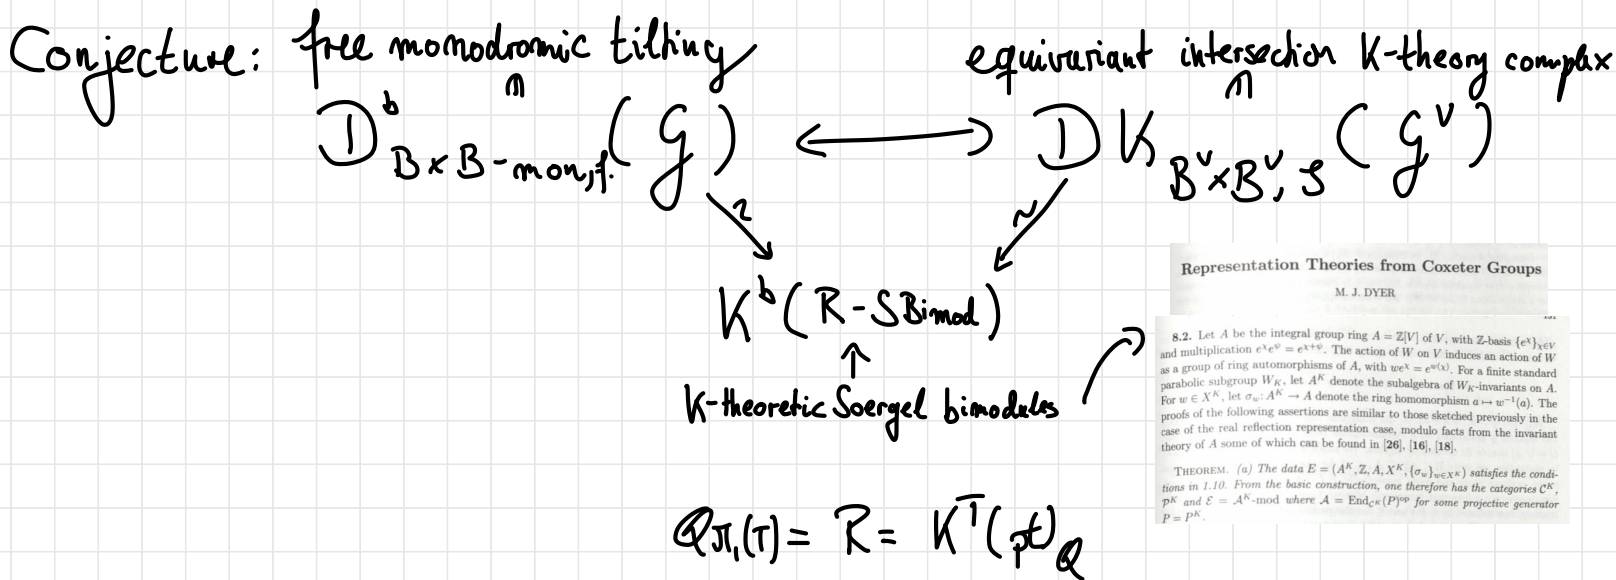 Conjecture: free monodromic tilting equivariant intersection K-theory complex
∩ ∩
D^b_{B×B-mon,f.}(G) ⟷ DK_{B^∨×B^∨, S}(G^∨)
~ ~
K^b(R-SBimod)
↑
K-theoretic Soergel bimodules
Qπ₁(T) = R = K^T(pt)_Q
Representation Theories from Coxeter Groups
M. J. DYER
8.2. Let A be the integral group ring A = ℤ[V] of V, with ℤ-basis {e^χ}_{χ∈V}
and multiplication e^χe^ψ = e^{χ+ψ}. The action of W on V induces an action of W
as a group of ring automorphisms of A, with we^χ = e^{w(χ)}. For a finite standard
parabolic subgroup W_K, let A^K denote the subalgebra of W_K-invariants on A.
For w ∈ X^K, let σ_w: A^K → A denote the ring homomorphism a ↦ w^{-1}(a). The
proofs of the following assertions are similar to those sketched previously in the
case of the real reflection representation case, modulo facts from the invariant
theory of A some of which can be found in [26], [16], [18].
THEOREM. (a) The data E = (A^K, ℤ, A, X^K, {σ_w}_{w∈X^K}) satisfies the condi-
tions in 1.10. From the basic construction, one therefore has the categories C^K,
P^K and ℰ = A^K-mod where A = End_{C^K}(P)^{op} for some projective generator
P = P^K.